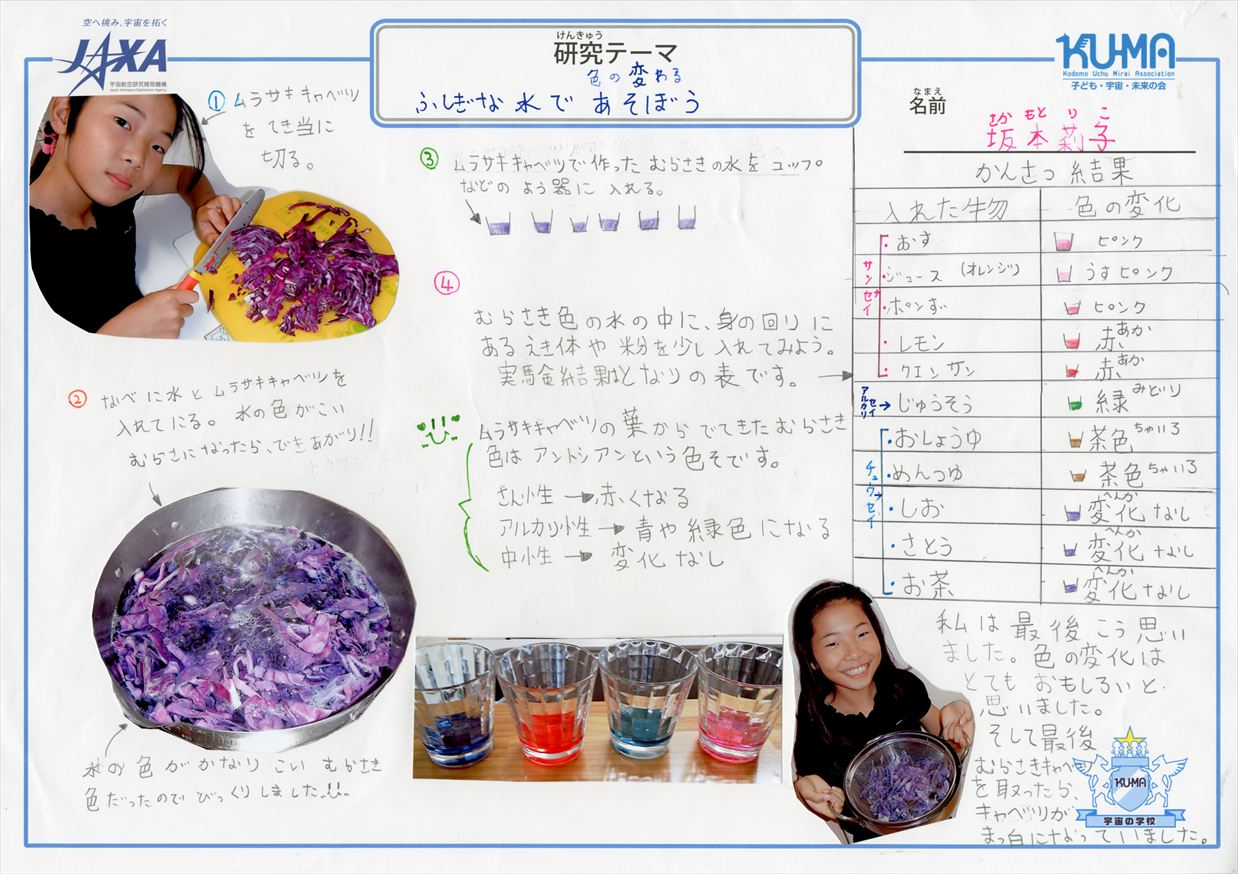 空へ挑み、宇宙を拓く
JAXA
宇宙航空研究開発機構
Japan Aerospace Exploration Agency
けんきゅう
研究テーマ
色の変わる
ふしぎな水であそぼう
KU-MA
Kodomo Uchu Mirai Association
子ども・宇宙・未来の会
なまえ
名前
さかもとりこ
坂本莉子
① ムラサキキャベツ
をてき当に
切る。
② なべに水とムラサキキャベツを
入れてにる。水の色がこい
むらさになったら、できあがり!!
水の色がかなりこいむらさき
色だったのでびっくりしました
③ ムラサキキャベツで作ったむらさきの水をコップ
などのよう器に入れる。
④
むらさき色の水の中に、身の回りに
あるえき体や粉を少し入れてみよう。
実験結果はとなりの表です。
ムラサキキャベツの葉からでてきたむらさき
色はアントシアンという色そです。
さん性→赤くなる
アルカリ性→青や緑色になる
中性→変化なし
かんさつ結果
入れた生物 色の変化
サンセイ
・おす ピンク
・ジュース (オレンジ) うすピンク
・ポンず ピンク
・レモン 赤 あか
・クエンサン 赤 あか
アルカリセイ→じゅうそう 緑 みどり
チューセイ
・おしょうゆ 茶色 ちゃいろ
・めんつゆ 茶色 ちゃいろ
・しお 変化なし へんか
・さとう 変化なし へんか
・お茶 変化なし へんか
私は最後こう思い
ました。色の変化は
とてもおもしろいと
思いました。
そして最後
むらさきキャベ
を取ったら、
キャベツが
まっ白になっていました。
KU-MA
宇宙の学校